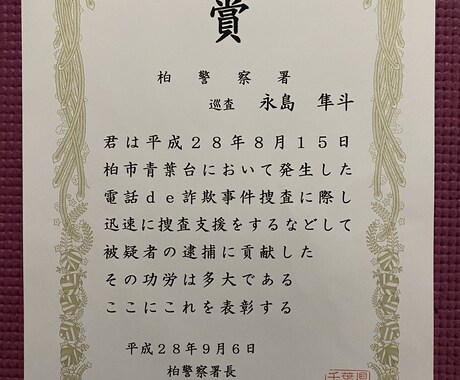 賞
柏警察署
巡査 永島 隼斗
君は平成28年8月15日
柏市青葉台において発生した
電話de詐欺事件捜査に際し
迅速に捜査支援をするなどして
被疑者の逮捕に貢献した
その功労は多大である
ここにこれを表彰する
平成28年9月6日
柏警察署長
千葉県